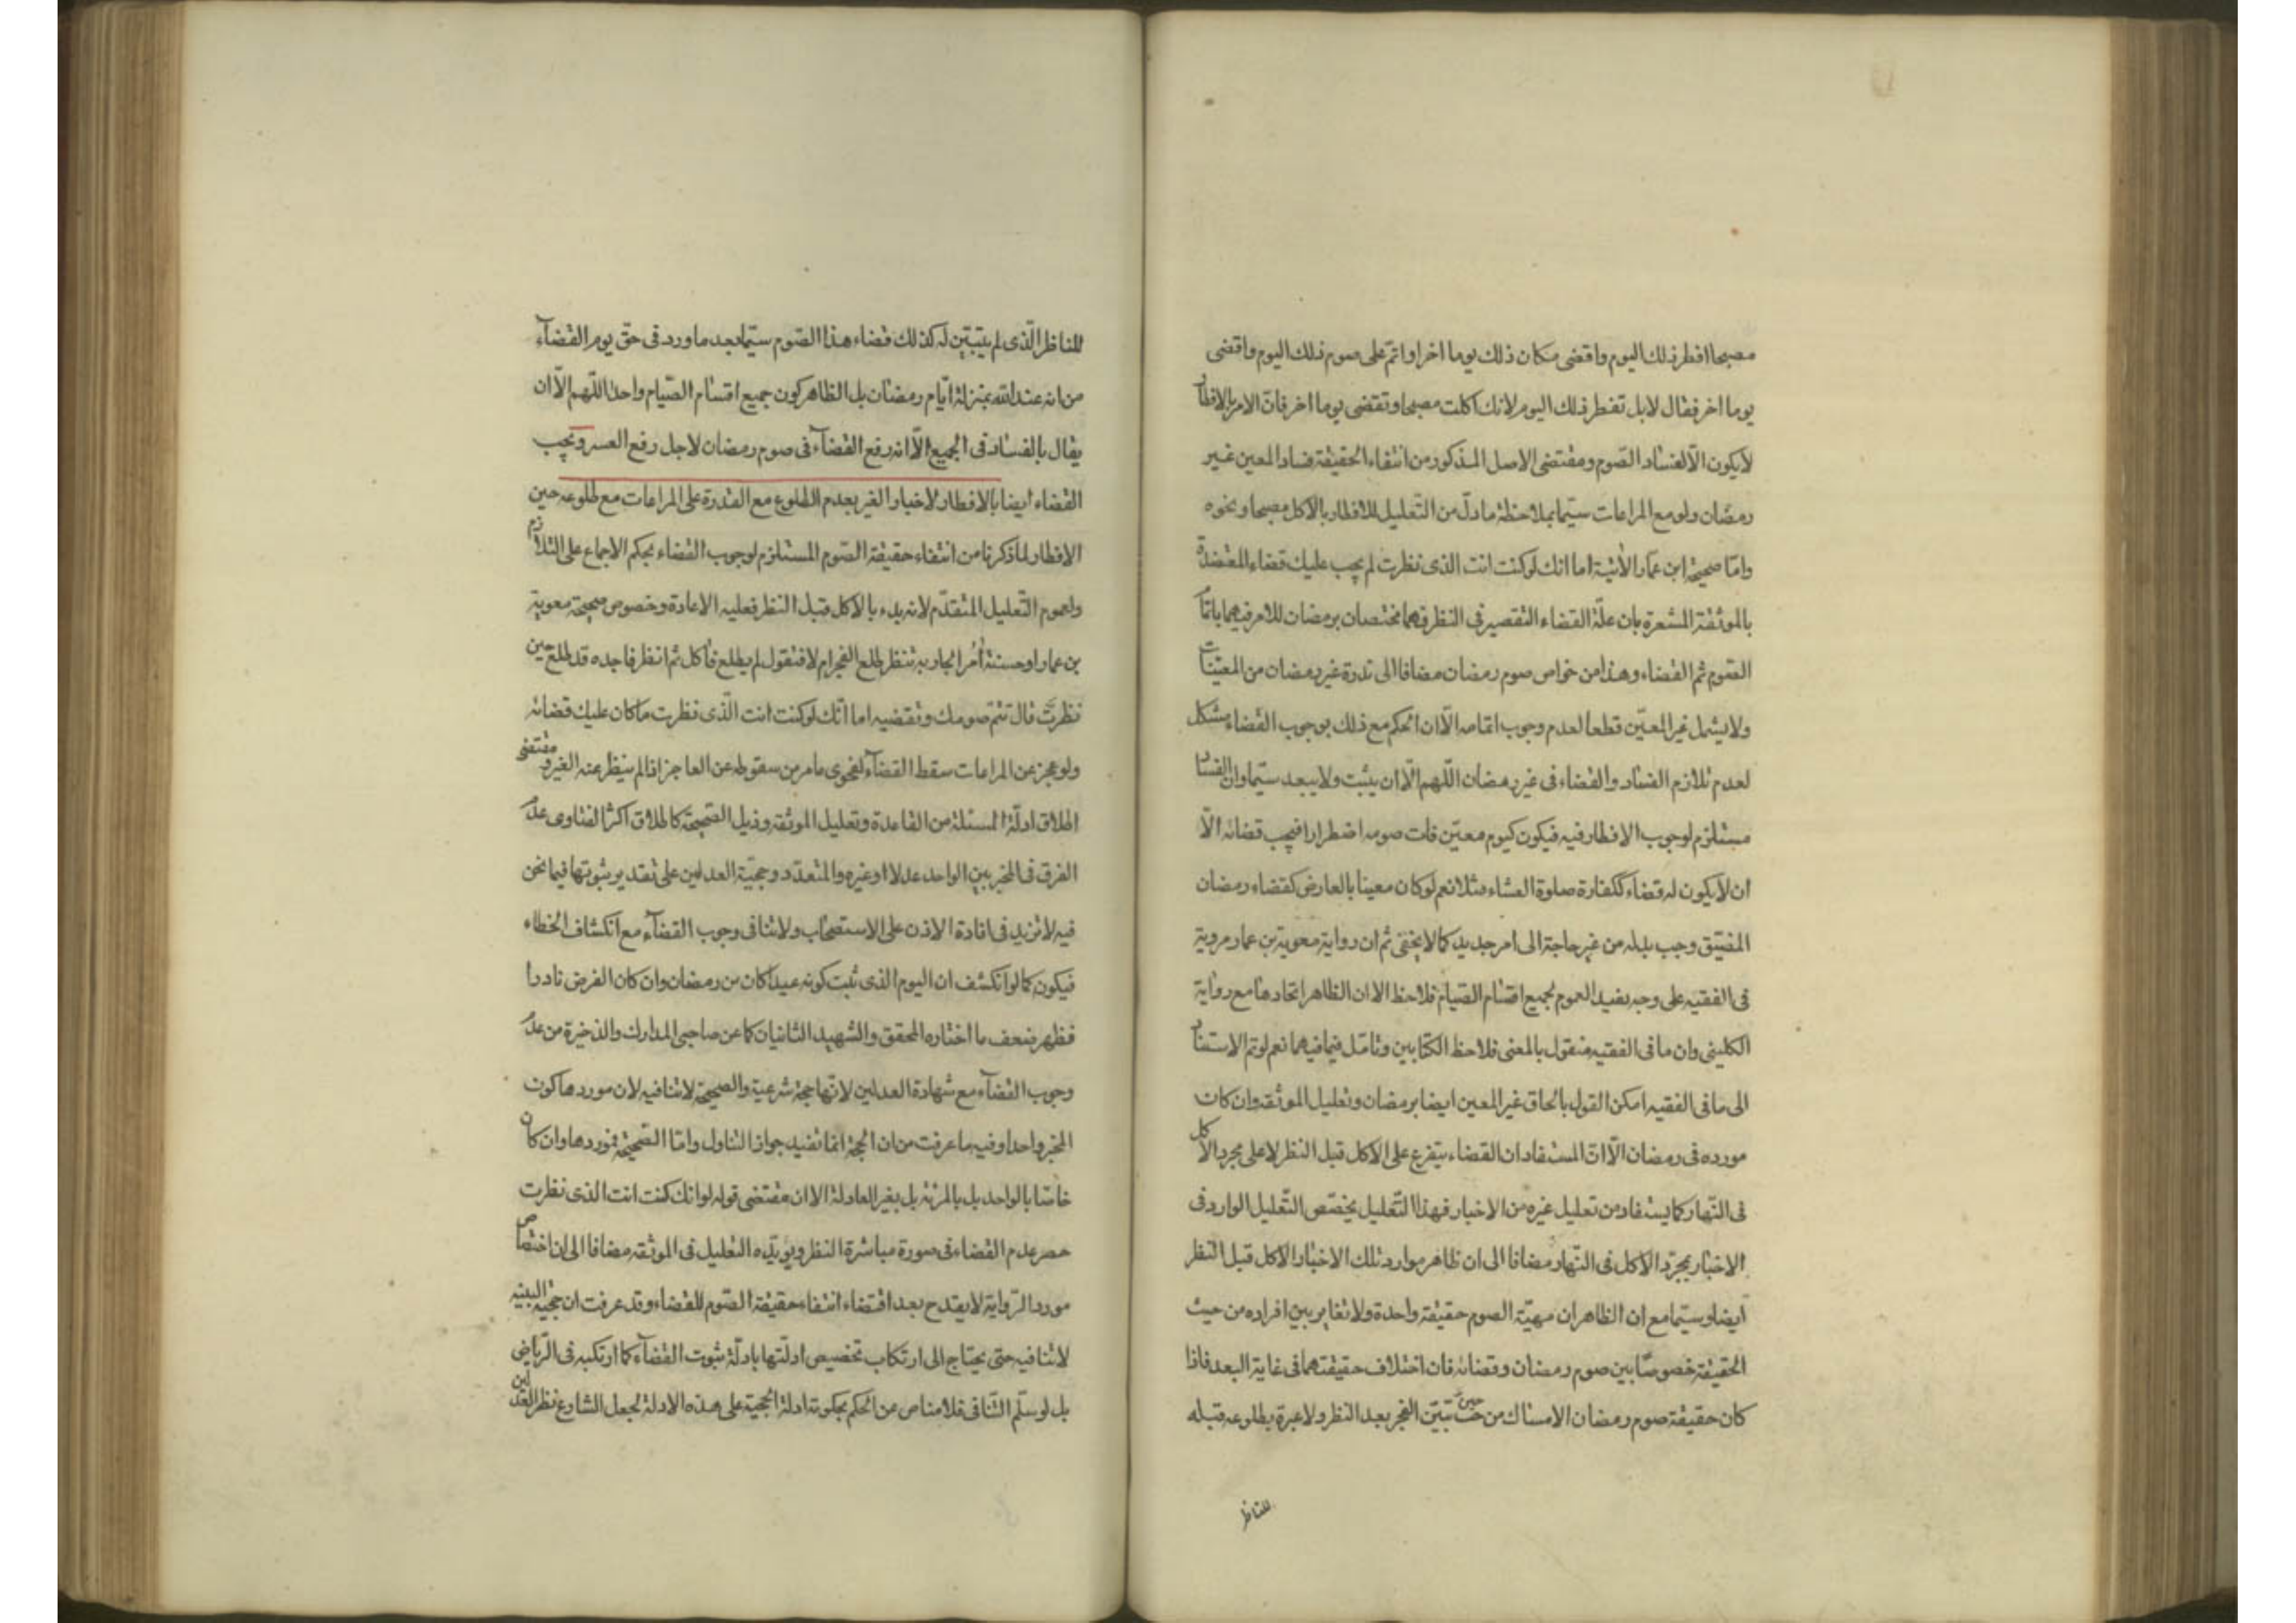 مصبحا افطر ذلك اليوم واقضى مكان ذلك يوما اخر او اتم على صوم ذلك اليوم واقضى
يوما اخر فقال لا بل تفطر ذلك اليوم لانك اكلت مصبحا وتقضى يوما اخر فان الامر بالافطار
لا يكون الا لفساد الصوم ومقتضى الاصل المذكور من انتفاء الحقيقة فساد المعين غير
رمضان ولو مع المراعات سيما بملاحظة ما دل من التعليل للافطار بالاكل مصبحا ونحوه
واما صحيحة ابن عمار الاتية اما انك لو كنت انت الذى نظرت لم يجب عليك قضاء المعتضدة
بالموثقة المشعرة بان علة القضاء التقصير فى النظر فهما مختصان برمضان للامر فيهما باتمام
الصوم ثم القضاء وهذا من خواص صوم رمضان مضافا الى ندرة غير رمضان من المعينات
ولا يشمل غير المعين قطعا لعدم وجوب اتمامه الا ان الحكم مع ذلك بوجوب القضاء مشكل
لعدم تلازم الفساد والقضاء فى غير رمضان اللهم الا ان يثبت ولا يبعد سيما وان الفساد
مستلزم لوجوب الافطار فيه فيكون كيوم معين فات صومه اضطرارا فيجب قضائه الا
ان لا يكون له قضاء ككفارة صلوة العشاء مثلا نعم لو كان معينا بالعارض كقضاء رمضان
المضيق وجب بدله من غير حاجة الى امر جديد كما لا يخفى ثم ان رواية معوية بن عمار مروية
فى الفقيه على وجه يفيد العموم لجميع اقسام الصيام فلاحظ الا ان الظاهر اتحادها مع رواية
الكلينى وان ما فى الفقيه منقول بالمعنى فلاحظ الكتابين وتامل فيما فيهما نعم لو تم الاستناد
الى ما فى الفقيه امكن القول بالحاق غير المعين ايضا برمضان وتعليل الموثقه وان كان
مورده فى رمضان الا ان المستفاد ان القضاء يتفرع على الاكل قبل النظر لا على مجرد الاكل
فى النهار كما يستفاد من تعليل غيره من الاخبار فهذا التعليل يخصص التعليل الوارد فى
الاخبار بمجرد الاكل فى النهار مضافا الى ان ظاهر موارد تلك الاخبار الاكل قبل النظر
ايضا وسيما مع ان الظاهر ان مهية الصوم حقيقة واحدة ولا تغاير بين افراده من حيث
الحقيقة خصوصا بين صوم رمضان وقضائه فان اختلاف حقيقتهما فى غاية البعد فاذا
كان حقيقة صوم رمضان الامساك من حين تبين الفجر بعد النظر ولا عبرة بطلوعه قبله
للناظر
للناظر الذى لم يتبين له كذلك قضاء هذا الصوم سيما بعد ما ورد فى حق يوم القضاء
من انه عند الله بمنزلة ايام رمضان بل الظاهر كون جميع اقسام الصيام واحدا اللهم الا ان
يقال بالفساد فى الجميع الا انه رفع القضاء فى صوم رمضان لاجل رفع العسر ويجب
القضاء ايضا بالافطار لاخبار الغير بعدم الطلوع مع القدرة على المراعات مع طلوعه حين
الافطار لما ذكرنا من انتفاء حقيقة الصوم المستلزم لوجوب القضاء بحكم الاجماع على التلازم
ولعموم التعليل المتقدم لانه بدء بالاكل قبل النظر فعليه الاعادة وخصوص صحيحة معوية
بن عمار او حسنته أمر الجارية تنظر طلع الفجر ام لا فتقول لم يطلع فآكل ثم انظر فاجده قد طلع حين
نظرت قال تتم صومك وتقضيه اما انك لو كنت انت الذى نظرت ما كان عليك قضائه
ولو عجز عن المراعات سقط القضاء لفحوى ما مر من سقوطه عن العاجز اذا لم ينظر عنه الغير ومقتضى
اطلاق ادلة المسئلة من القاعدة وتعليل الموثقه وذيل الصحيحة كاطلاق اكثر الفتاوى عدم
الفرق فى المخبر بين الواحد عدلا او غيره والمتعدد وحجية العدلين على تقدير ثبوتها فيما نحن
فيه لا تزيد فى افادة الاذن على الاستصحاب ولا تنافى وجوب القضاء مع انكشاف الخطاء
فيكون كما لو انكشف ان اليوم الذى ثبت كونه عيدا كان من رمضان وان كان الفرض نادرا
فظهر ضعف ما اختاره المحقق والشهيد الثانيان كما عن صاحبى المدارك والذخيرة من عدم
وجوب القضاء مع شهادة العدلين لانها حجة شرعية والصحيحة لا تنافيه لان موردها كون
المخبر واحدا وفيه ما عرفت من ان الحجة انما تفيد جواز التناول واما الصحيحة فموردها وان كان
خاصا بالواحد بل بالمرئة بل بغير العادلة الا ان مقتضى قوله لو انك كنت انت الذى نظرت
حصر عدم القضاء فى صورة مباشرة النظر ويؤيده التعليل فى الموثقه مضافا الى ان اختصاص
مورد الرواية لا يقدح بعد اقتضاء انتفاء حقيقة الصوم للقضاء وقد عرفت ان حجية البينه
لا تنافيه حتى يحتاج الى ارتكاب تخصيص ادلتها بادلة ثبوت القضاء كما ارتكبه فى الرياض
بل لو سلم التنافى فلا مناص عن الحكم بحكومة ادلة الحجية على هذه الادلة لجعل الشارع نظر العدلين